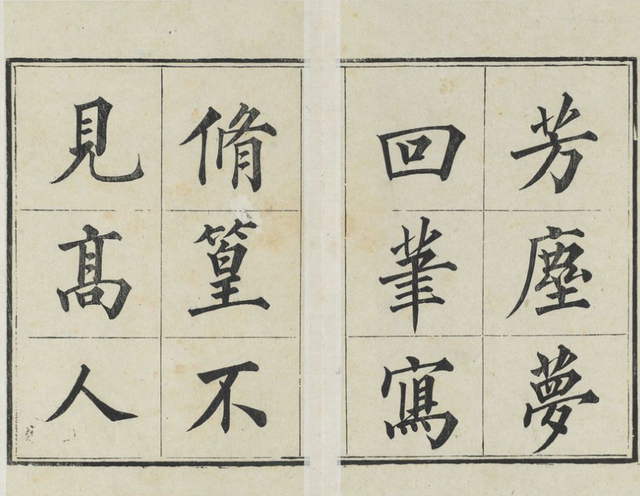 芳塵夢
回筆寫
脩篁不
見髙人